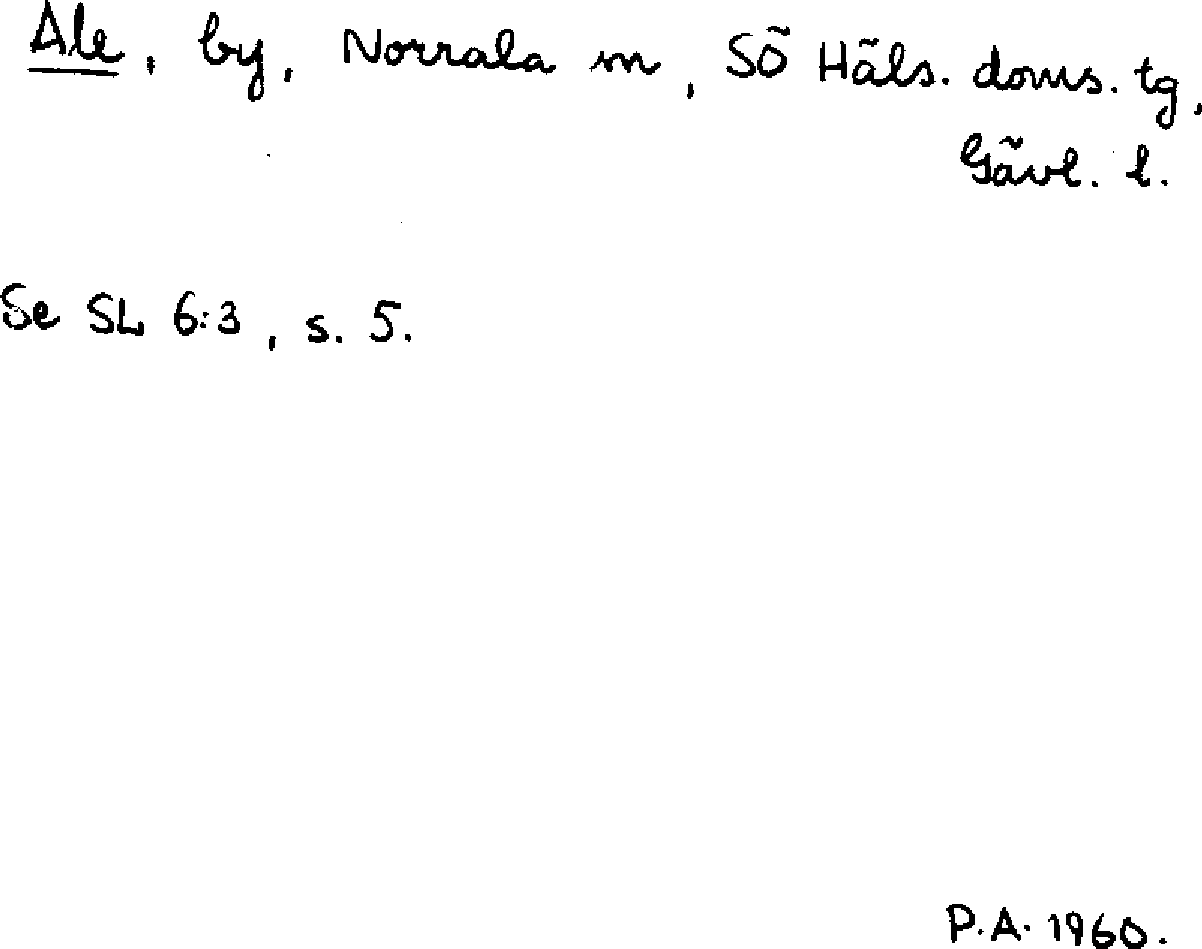 Ale, by, Norrala sn, Sö Häls. doms. tg,
Gävl. l.
Se SL 6:3, s. 5.
P.A. 1960.